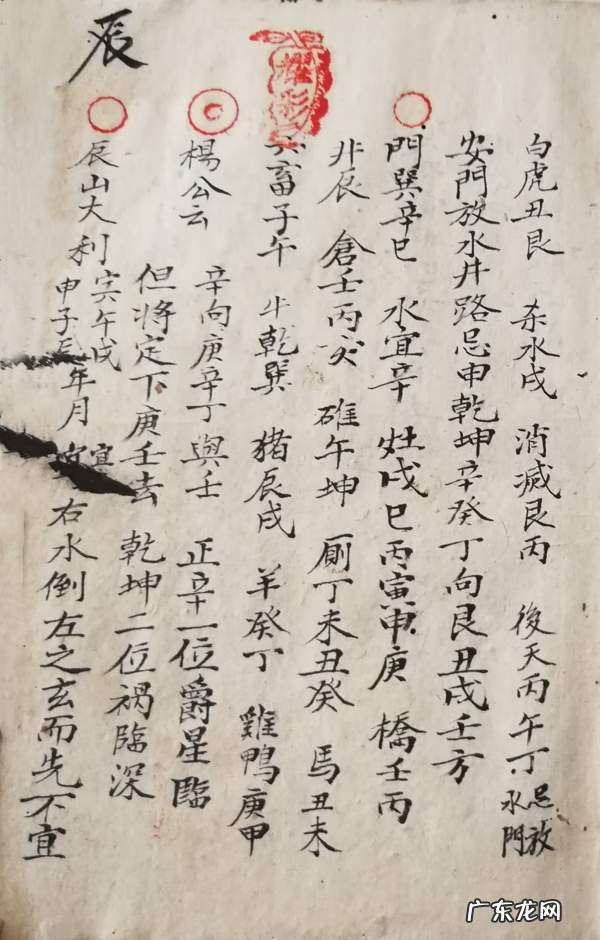 白虎丑艮 杀水戌 消滅艮丙 後天丙午丁 忌放水門
安門放水井路忌申乾坤辛癸丁向艮丑戌壬方
門巽辛巳 水宜辛 灶戌巳丙寅申庚 橋壬丙
非辰 倉壬丙亥 碓午坤 厠丁未丑癸 馬丑未
六畜子午 牛乾巽 猪辰戌 羊癸丁 雞鴨庚甲
楊公云 辛向庚辛丁與壬 正辛一位爵星臨
但将定下庚壬去 乾坤二位禍臨深
辰山大利 寅午戌 申子辰年月 宜 右水倒左之玄而先不宜
辰
耀彩
广东龙网